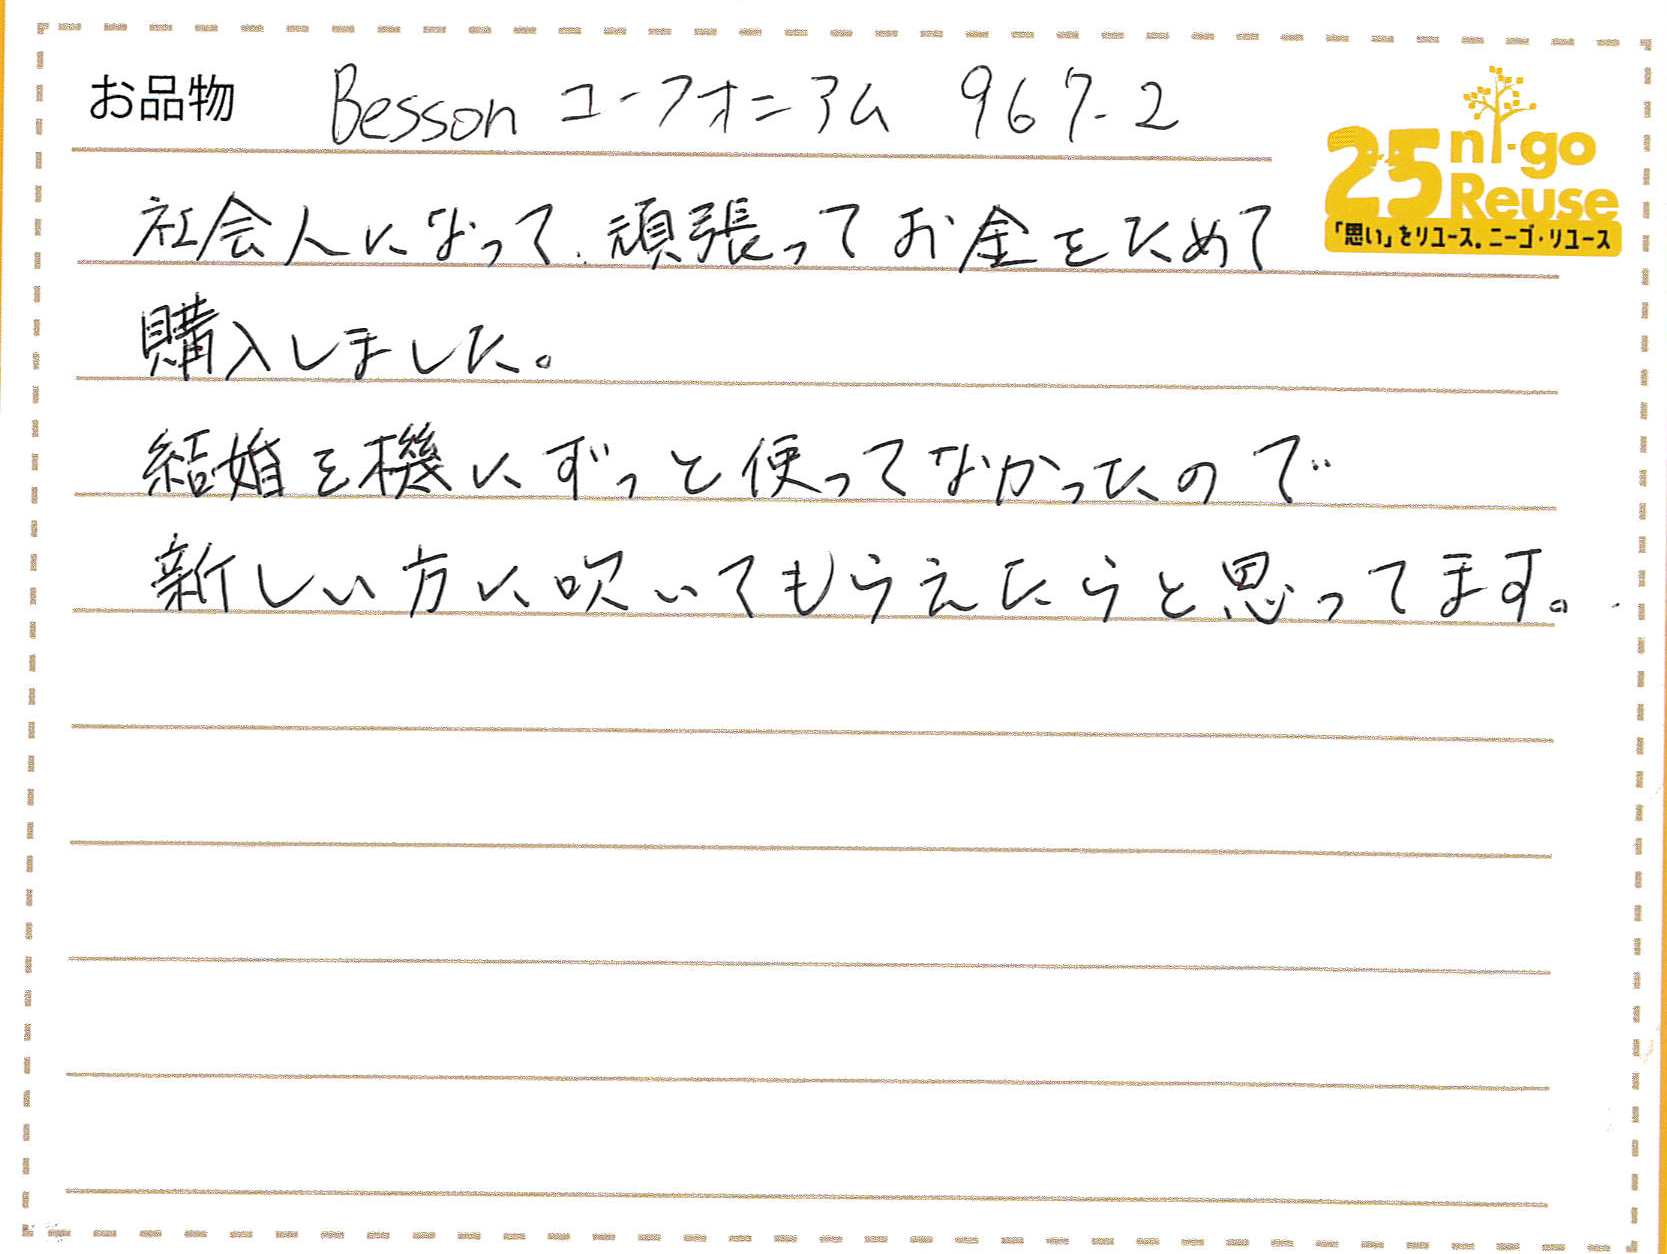 お品物 Besson ユーフォニアム 967-2
25 ni-go
Reuse
「思い」をリユース。ニーゴ・リユース
社会人になって、頑張ってお金をためて
購入しました。
結婚を機にずっと使ってなかったので
新しい方に吹いてもらえたらと思ってます。